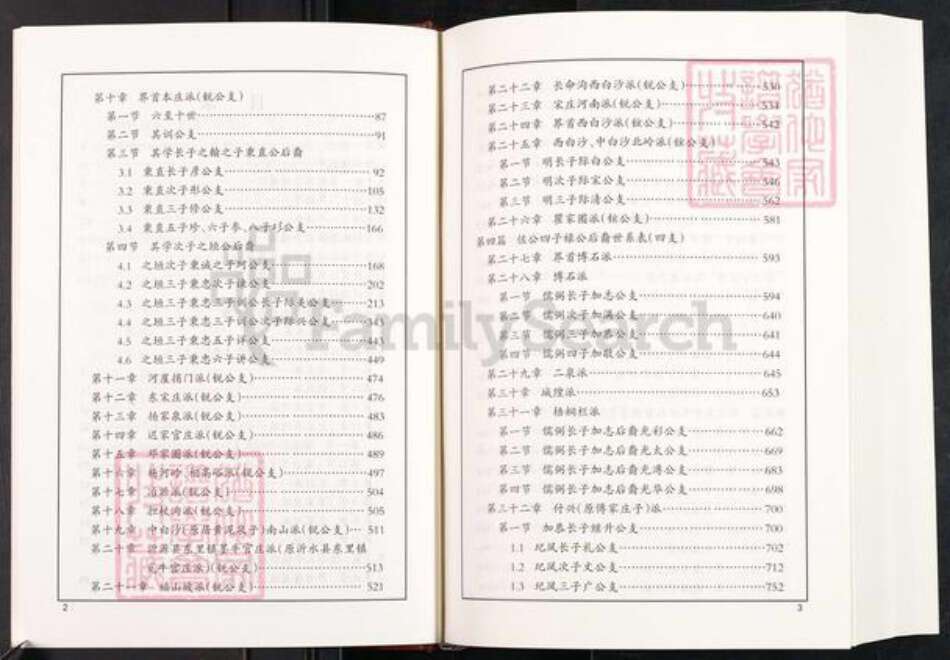 第十章 界首本庄派(锐公支)
第一节 六至十世……87
第二节 其训公支……91
第三节 其学长子之翰之子秉直公后裔
3.1 秉直长子彦公支……92
3.2 秉直次子彤公支……105
3.3 秉直三子修公支……132
3.4 秉直五子珍、六子参、八子彩公支……166
第四节 其学次子之垣公后裔
4.1 之垣次子秉诚之子珂公支……168
4.2 之垣三子秉忠次子公支……202
4.3 之垣三子秉忠三子训公长子际美公支……213
4.4 之垣三子秉忠三子训公次子际兴公支……343
4.5 之垣三子秉忠五子详公支……443
4.6 之垣三子秉忠六子讲公支……449
第十一章 河崖拐门派(锐公支)……474
第十二章 东宋庄派(锐公支)……476
第十三章 杨家泉派(锐公支)……483
第十四章 迟家官庄派(锐公支)……486
第十五章 邓家圈派(锐公支)……489
第十六章 (锐公支)……497
第十七章 冶源派(锐公支)……504
第十八章 担杖沟派(锐公支)……505
第十九章 中白沙(原居黄泥崖子)南山派(锐公支)…511
第二十章 沂源县东里镇墨牛官庄派(原沂水县东里镇
牛官庄派)(锐公支)……513
第二十一章 福山坡派(锐公支)……521
2
第二十二章 长命沟西白沙派(锐公支)……530
第二十三章 宋庄河南派(锐公支)……534
第二十四章 界首西白沙派(铨公支)……542
第二十五章 西白沙、中白沙北岭派(铨公支)
第一节 明长子际白公支……543
第二节 明次子际宋公支……546
第三节 明三子际清公支……562
第二十六章 瞿家圈派(铨公支)……581
第四篇 公四子禄公后裔世系表(四支)
第二十七章 界首博石派……593
第二十八章 博石派
第一节 儒俐长子加志公支……594
第二节 儒俐次子加满公支……640
第三节 儒俐三子加恭公支……641
第四节 儒俐四子加敬公支……644
第二十九章 二泉派……645
第三十章 城隍派……653
第三十一章 梧桐栏派
第一节 儒俐长子加志后裔光彩公支……662
第二节 儒俐长子加志后裔光太公支……669
第三节 儒俐长子加志后裔光溥公支……683
第四节 儒俐长子加志后裔光华公支……698
第三十二章 付兴(原傅家庄子)派……700
第一节 加恭长子继升公支……700
1.1 圮凤长子礼公支……702
1.2 圮凤次子文公支……712
1.3 圮凤三子广公支……752
3
FamilySearch